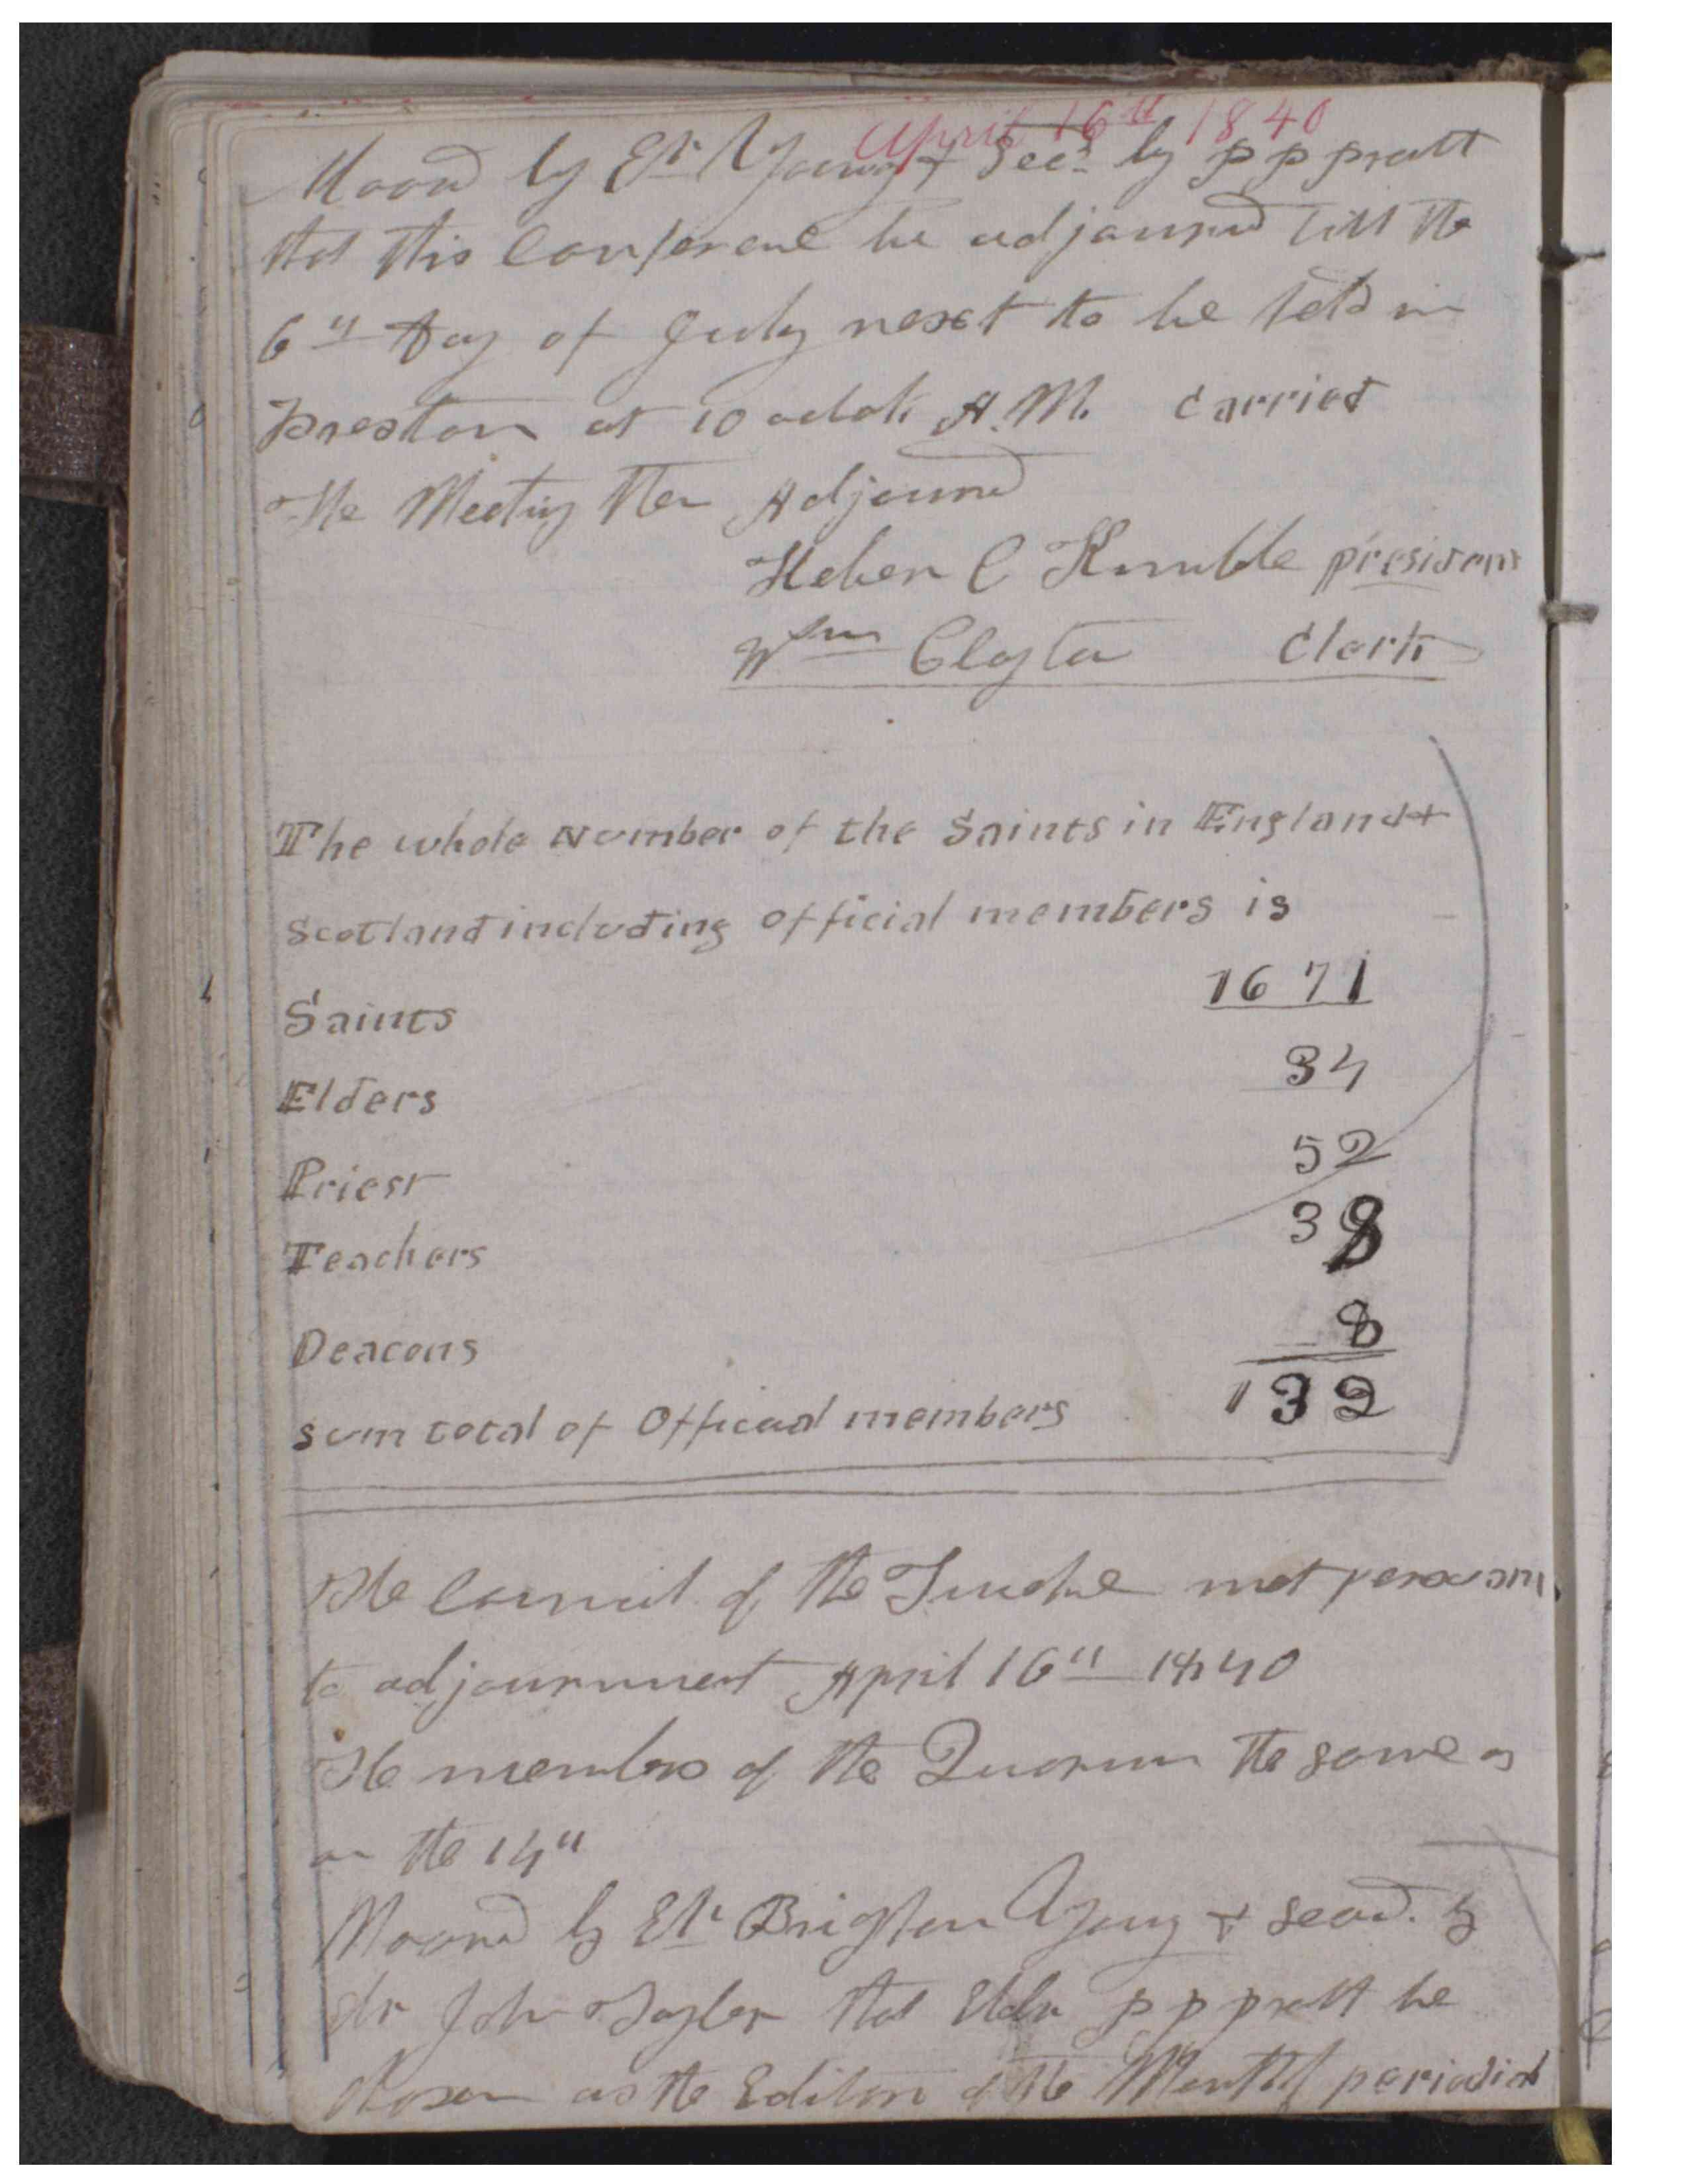 April 16th 1840
Moovd by Er Young + Secd by P P Pratt
that this Conferenc be adjournd till the
6th day of July next to be held in
Preston at 10 oclok A.M. Carried
The Meeting then Adjournd
Heber C Kimble president
Wm Clayton Clerk
The whole Number of the Saints in England +
Scotland including official members is
Saints 1671
Elders 34
Priest 52
Teachers 38
Deacons 8
Sum total of Official members 132
The Council of the Twelve met
to adjournment April 16th 1840
The members of the Quorum the same as
on the 14th
Moovd by Er Brigham Young + secod. by
Er John Taylor that Elder P P Pratt be
chosen as the Editor of the Monthly periodical